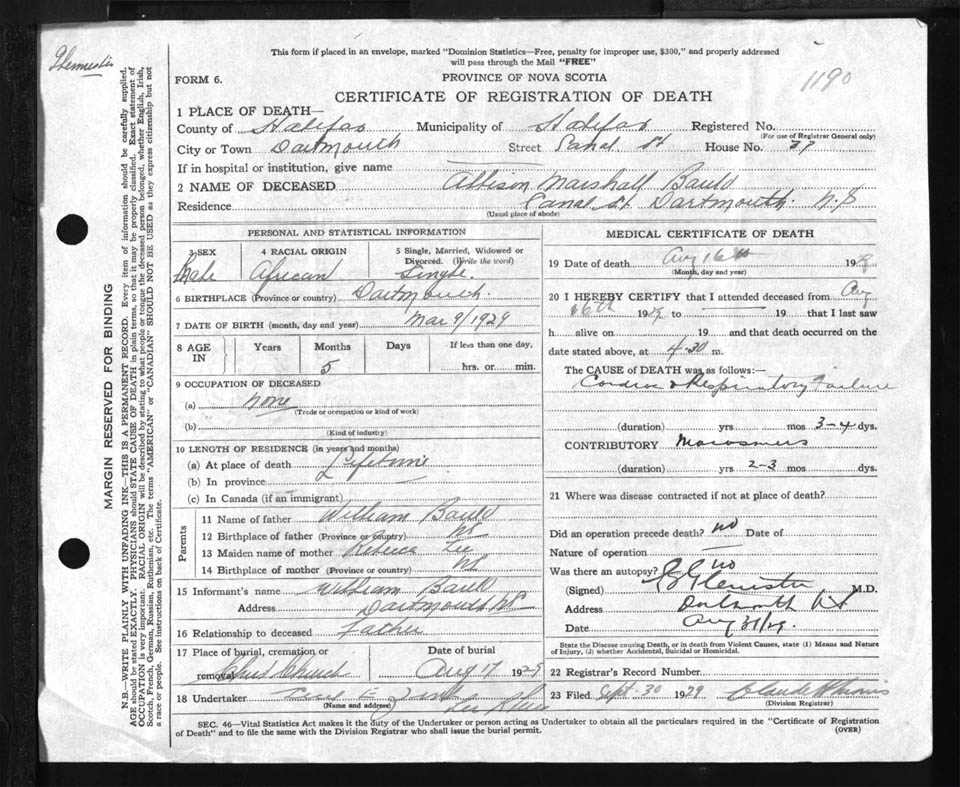 This form if placed in an envelope, marked "Dominion Statistics—Free, penalty for improper use, $300," and properly addressed
will pass through the Mail "FREE"
FORM 6.
PROVINCE OF NOVA SCOTIA
1190
CERTIFICATE OF REGISTRATION OF DEATH
1 PLACE OF DEATH—
County of Halifax Municipality of Halifax Registered No.
(For use of Registrar General only)
City or Town Dartmouth Street Canal St House No. 37
If in hospital or institution, give name
2 NAME OF DECEASED Addison Marshall Bauld
Residence Canal St. Dartmouth. N.S
(Usual place of abode)
PERSONAL AND STATISTICAL INFORMATION
3 SEX 4 RACIAL ORIGIN 5 Single, Married, Widowed or Divorced. (Write the word)
Male African Single.
6 BIRTHPLACE (Province or country) Dartmouth
7 DATE OF BIRTH (month, day and year) Mar 9/1929
8 AGE IN Years Months Days If less than one day,
5 hrs. or min.
9 OCCUPATION OF DECEASED
(a) none
(Trade or occupation or kind of work)
(b)
(Kind of industry)
10 LENGTH OF RESIDENCE (in years and months)
(a) At place of death Lifetime
(b) In province
(c) In Canada (if an immigrant)
Parents
11 Name of father William Bauld
12 Birthplace of father (Province or country) NS
13 Maiden name of mother Rebecca Lee
14 Birthplace of mother (Province or country) NS
15 Informant's name William Bauld
Address Dartmouth NS
16 Relationship to deceased Father
17 Place of burial, cremation or removal Date of burial
Christ Church Aug 17 1929
18 Undertaker
(Name and address)
MEDICAL CERTIFICATE OF DEATH
19 Date of death Aug 16th 1929
(Month, day and year)
20 I HEREBY CERTIFY that I attended deceased from Aug
16th 1929 to 19 that I last saw
h alive on 19 and that death occurred on
date stated above, at 4.30 m.
The CAUSE of DEATH was as follows:—
Cardiac & Respiratory Failure
(duration) yrs mos 3-4 dys.
CONTRIBUTORY Marasmus
(duration) yrs 2-3 mos dys.
21 Where was disease contracted if not at place of death?
Did an operation precede death? no Date of
Nature of operation
Was there an autopsy? no
(Signed) M.D.
Address Dartmouth NS
Date Aug 31/29.
State the Disease causing Death, or in death from Violent Causes, state (1) Means and Nature of Injury, (2) whether Accidental, Suicidal or Homicidal.
22 Registrar's Record Number
23 Filed Sept-30 1929
(Division Registrar)
SEC. 46—Vital Statistics Act makes it the duty of the Undertaker or person acting as Undertaker to obtain all the particulars required in the "Certificate of Registration
of Death" and to file the same with the Division Registrar who shall issue the burial permit.
(OVER)
MARGIN RESERVED FOR BINDING
N.B.—WRITE PLAINLY WITH UNFADING INK—THIS IS A PERMANENT RECORD. Every item of information should be carefully supplied.
AGE should be stated EXACTLY. PHYSICIANS should STATE CAUSE OF DEATH in plain terms, so that it may be properly classified. Exact statement of
OCCUPATION is very important. RACIAL ORIGIN will be described by stating to what people or tongue the deceased person belonged, whether English, Irish,
Scotch, French, German, Russian, Ruthenian, etc. The terms "AMERICAN" or "CANADIAN" SHOULD NOT BE USED as they express citizenship but not
a race or people. See instructions on back of Certificate.